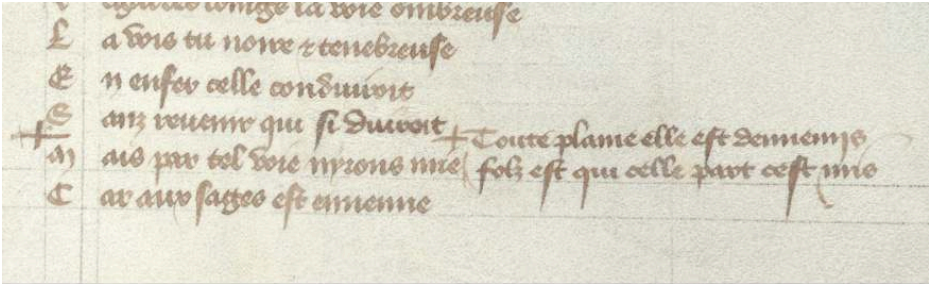 la voie ombreuse
L a vois tu noire ⁊ tenebreuse
E n enfer celle conduiroit
S anz revenir qui si duiroit + Toute plaine elle est dennemis
+ M ais par tel voie nyrons mie folz est qui celle part cest mis
C ar aux sages est ennemie